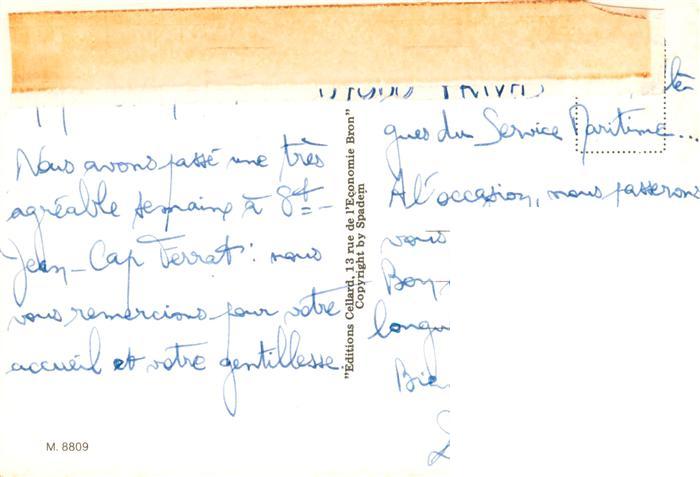 Nous avons passé une très
agréable semaine à St-
Jean-Cap Ferrat : nous
vous remercions pour votre
accueil et votre gentillesse.
M. 8809
"Editions Cellard, 13 rue de l'Economie Bron"
Copyright by Spadem
gues du Service Maritime...
A l'occasion, nous passerons
vous
Bon
longu
Bie